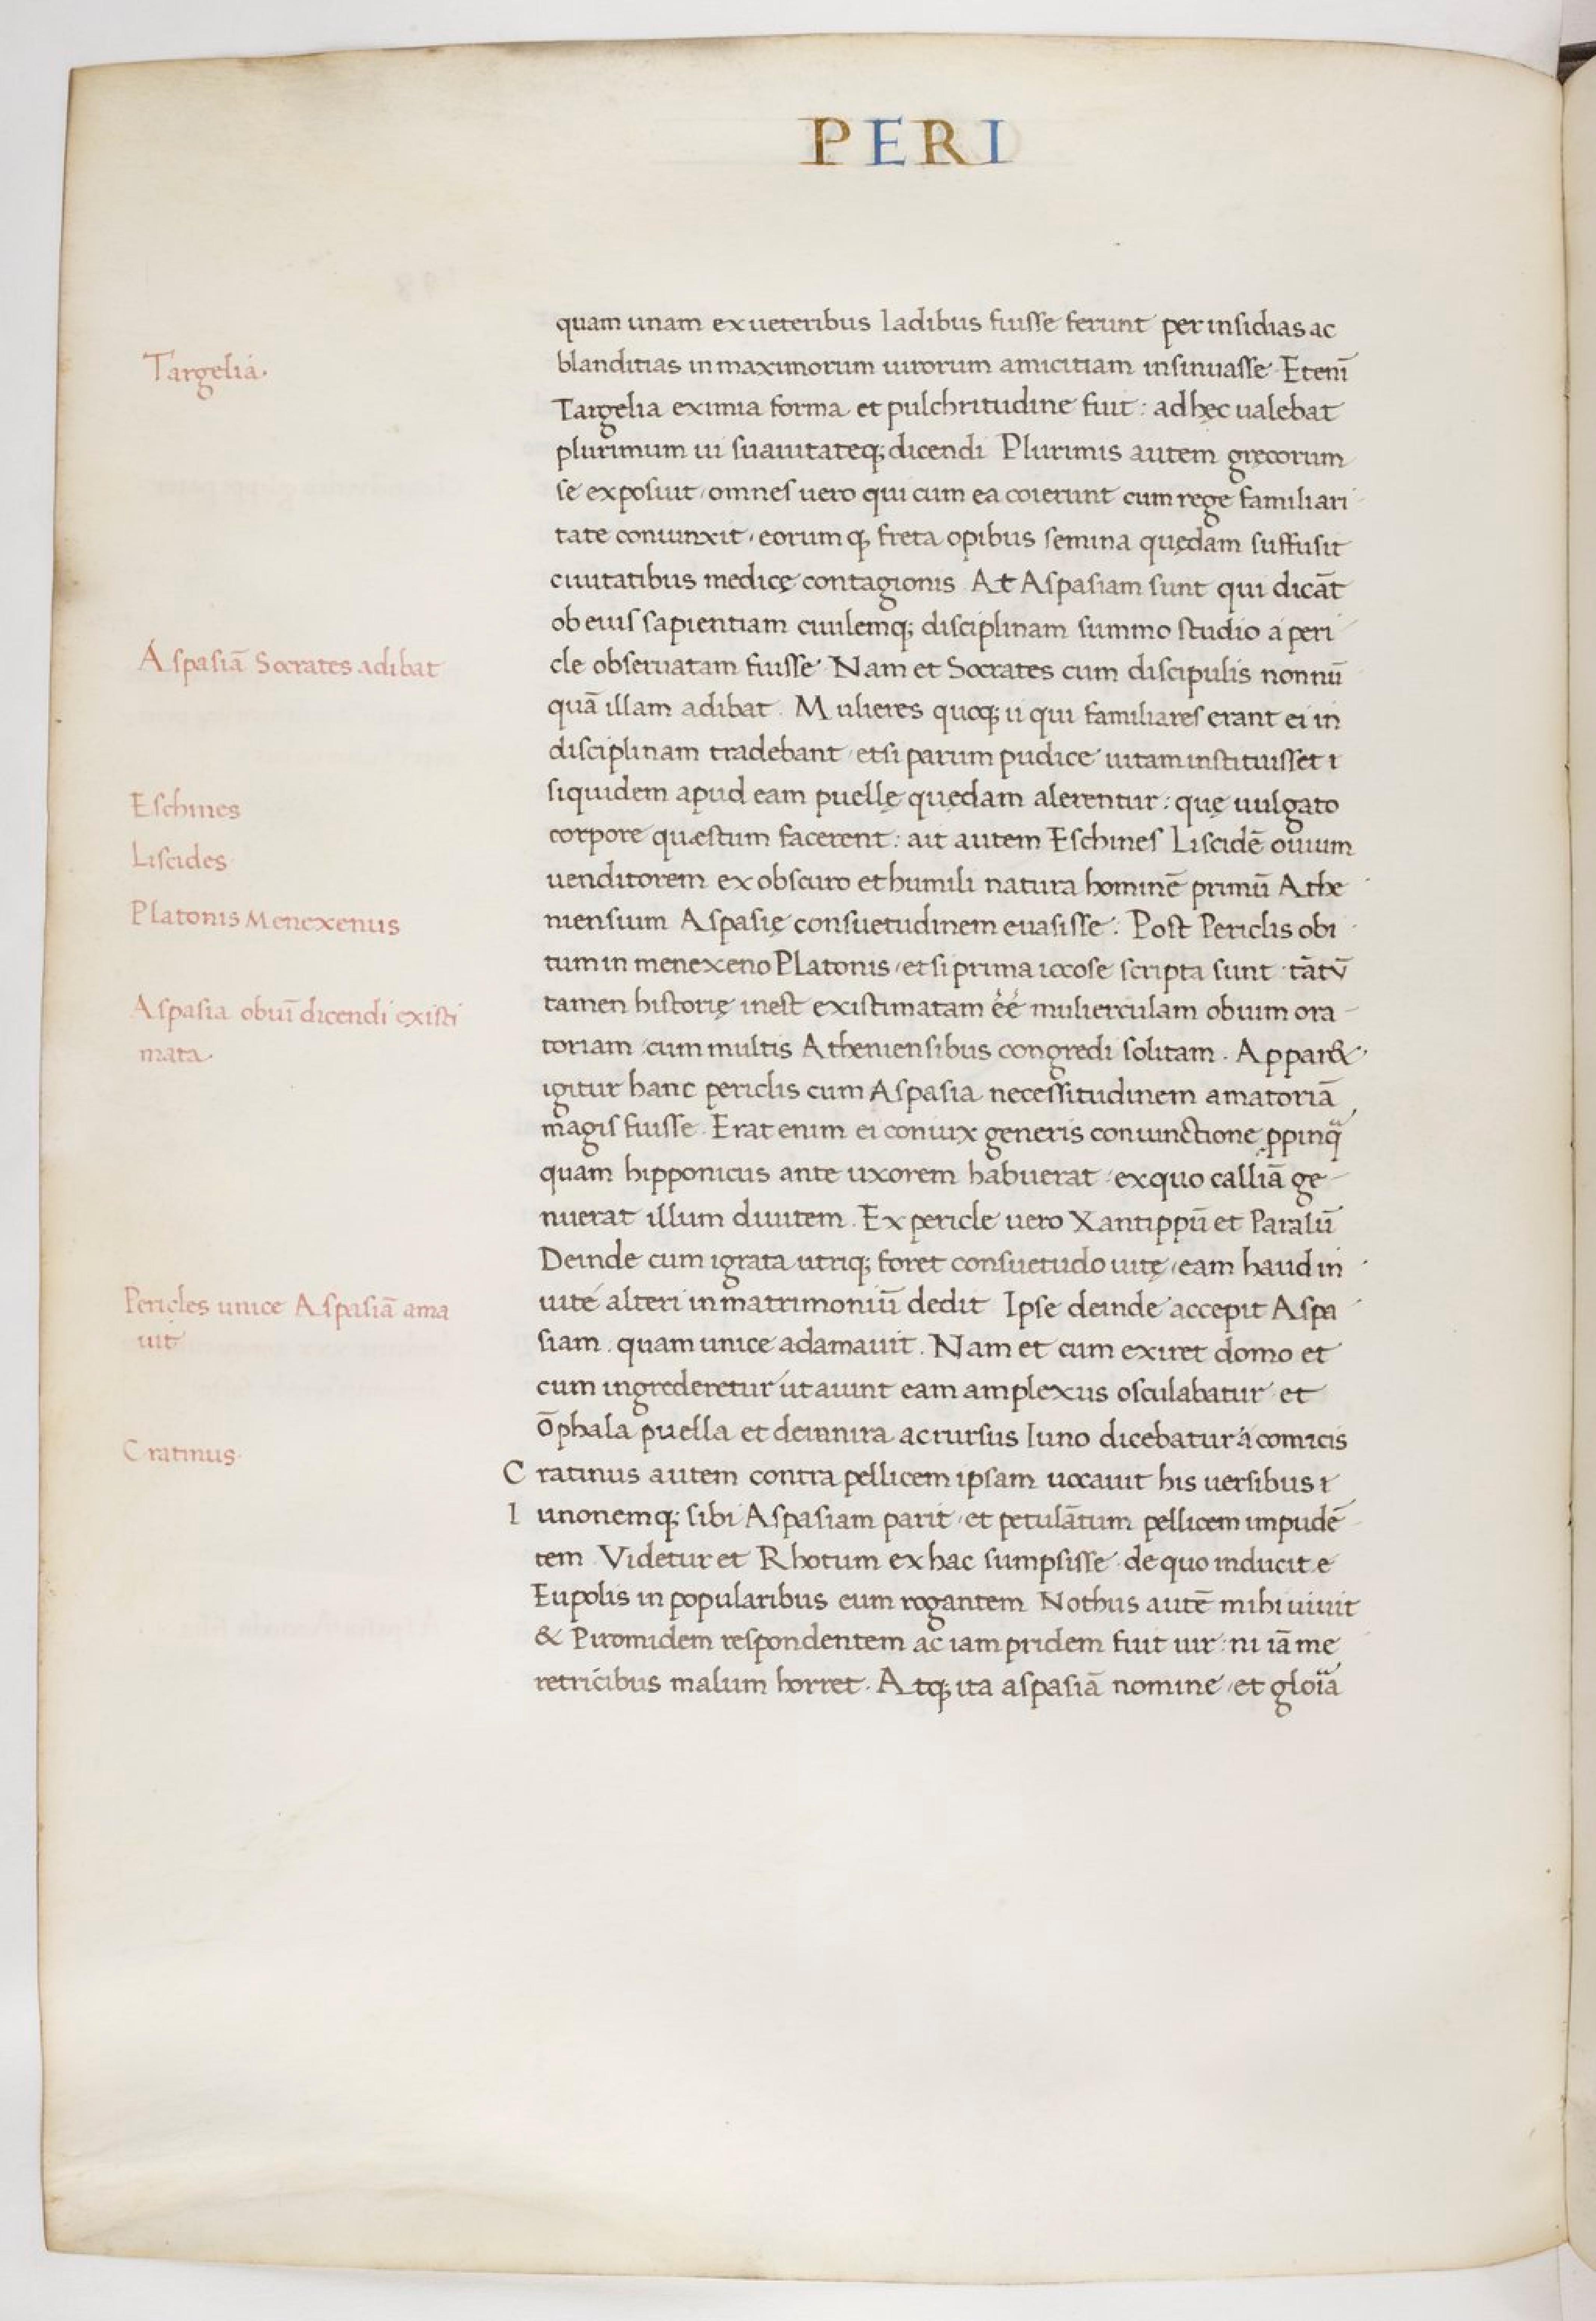 PERI
quam unam ex ueteribus Iadibus fuisse ferunt per insidias ac
Targelia.
blanditias in maximorum uirorum amicitiam insinuasse. Etenī
Targelia eximia forma et pulchritudine fuit: ad hęc ualebat
plurimum ui suauitateq; dicendi Plurimis autem gręcorum
se exposuit, omnes uero qui cum ea coierunt cum rege familiari
tate coniunxit, eorumq; freta opibus semina quędam suffusit
ciuitatibus medicę contagionis. At Aspasiam sunt qui dicāt
ob eius sapientiam ciuilemq; disciplinam summo studio a peri
Aspasiā Socrates adibat
cle obseruatam fuisse. Nam et Socrates cum discipulis nonnū
quā illam adibat. Mulieres quoq; ii qui familiares erant ei in
disciplinam tradebant, etsi parum pudice uitam instituisset:
Eschines
siquidem apud eam puellę quędam alerentur: quę uulgato
corpore quæstum facerent: ait autem Eschines Liscidē ouium
Liscides
uenditorem ex obscuro et humili natura hominē primū Athe
Platonis Menexenus
niensium Aspasię consuetudinem euasisse: Post Periclis obi
tum in menexeno Platonis, et si prima iocose scripta sunt tātū
Aspasia obuī dicendi existi
mata.
tamen historię inest existimatam éé mulierculam ob uim ora
toriam cum multis Atheniensibus congredi solitam. Appar&
igitur hanc periclis cum Aspasia necessitudinem amatoriā
magis fuisse. Erat enim ei coniux generis coniunctione ꝓpinq̈
quam hipponicus ante uxorem habuerat, ex quo calliā ge
nuerat illum diuitem. Ex pericle uero Xantippū et Paralū
Deinde cum igrata utriq; foret consuetudo uitę, eam haud in
Pericles unice Aspasiā ama
uit
uite alteri in matrimoniū dedit Ipse deinde accepit Aspa
siam. quam unice adamauit. Nam et cum exiret domo et
cum ingrederetur ut aiunt eam amplexus osculabatur et
ōphala puella et deianira ac rursus Iuno dicebatur á comicis
Cratinus.
Cratinus autem contra pellicem ipsam uocauit his uersibus:
Iunonemq; sibi Aspasiam parit, et petulātum pellicem impudē
tem Videtur et Rhotum ex hac sumpsisse de quo inducit e
Eupolis in popularibus eum rogantem Nothus autē mihi uiuit
& Piromidem respondentem ac iam pridem fuit uir: ni iā me
retricibus malum horret. Atq; ita aspasiā nomine, et gloïa